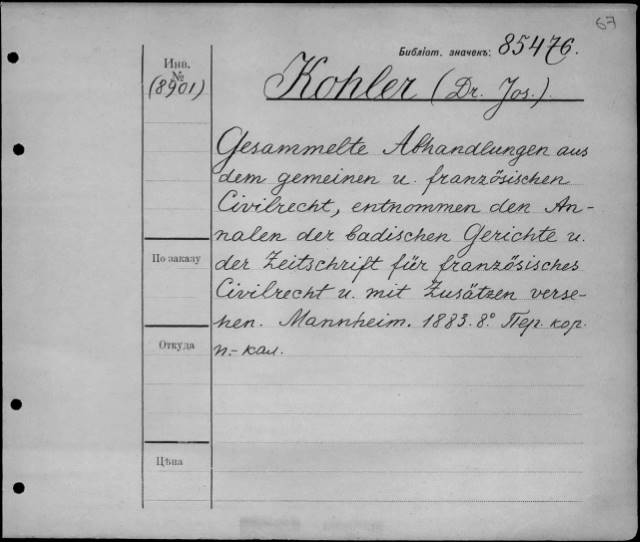 67
Библіот. значекъ: 85476.
Инв.
№
(8901)
Kohler (Dr. Jos.)
Gesammelte Abhandlungen aus
dem gemeinen u. französischen
Civilrecht, entnommen den An-
nalen der badischen Gerichte u.
der Zeitschrift für französisches
Civilrecht u. mit Zusätzen verse-
hen. Mannheim. 1883. 8º Пер. кор.
п.-кал.
По заказу
Откуда
Цѣна